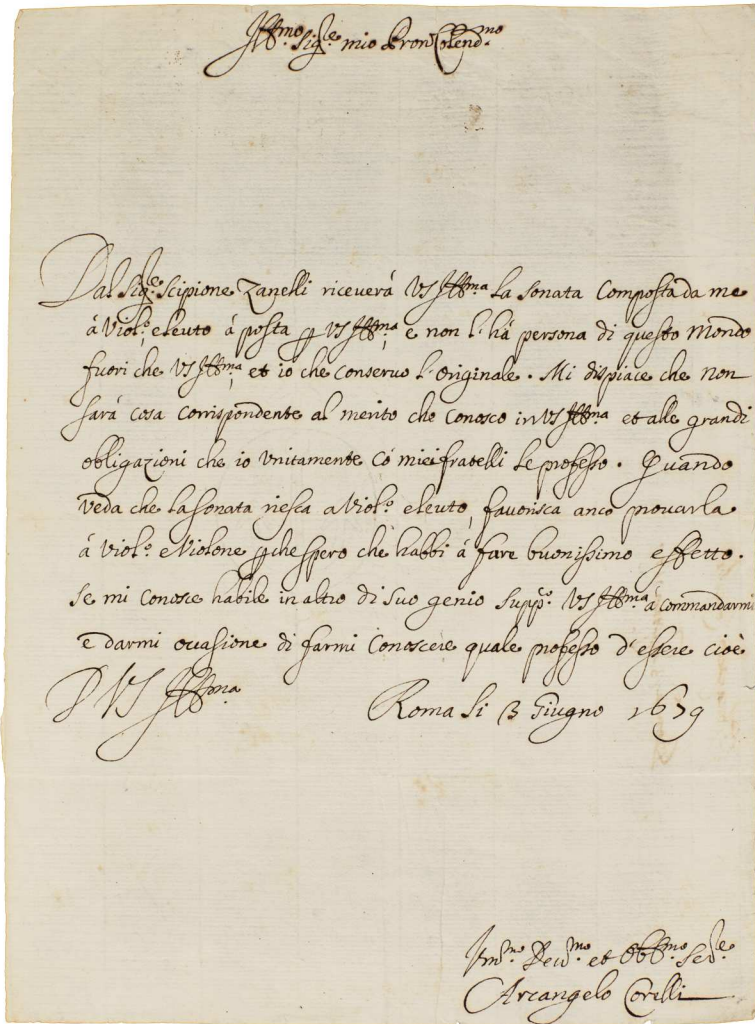 Ill.mo Sig.re mio Pron Colend.mo
Dal Sig.re Scipione Zanelli riceverá VS Ill.ma la sonata Composta da me
á Viol.o, e leuto á posta p VS Ill.ma, e non l'há persona di questo Mondo
fuori che VS Ill.ma, et io che conservo l'Originale. Mi dispiace che non
sará cosa corrispondente al merito che conosco in VS Ill.ma et alle grandi
obligazioni che io Unitamente Có miei fratelli le professo. Quando
veda che la sonata riesca a Viol.o e leuto, favorisca anco provarla
á Viol.o e Violone p che spero che habbi á fare buonissimo effetto.
Se mi conosce habile in altro di suo genio supp.o VS Ill.ma á commandarmi
e darmi occasione di farmi Conoscere quale professo d'essere cioè
D VS Ill.ma
Roma li 3 Giugno 1679
Um.mo Dev.mo et Obb.mo Ser.re
Arcangelo Corelli